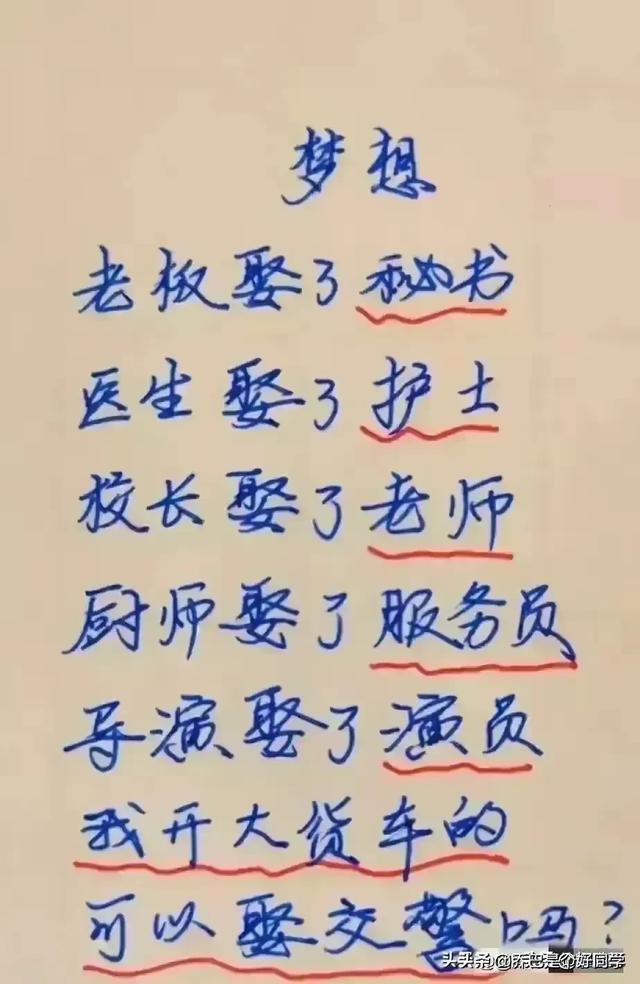 梦想
老板娶了秘书
医生娶了护士
校长娶了老师
厨师娶了服务员
导演娶了演员
我开大货车的
可以娶交警吗?